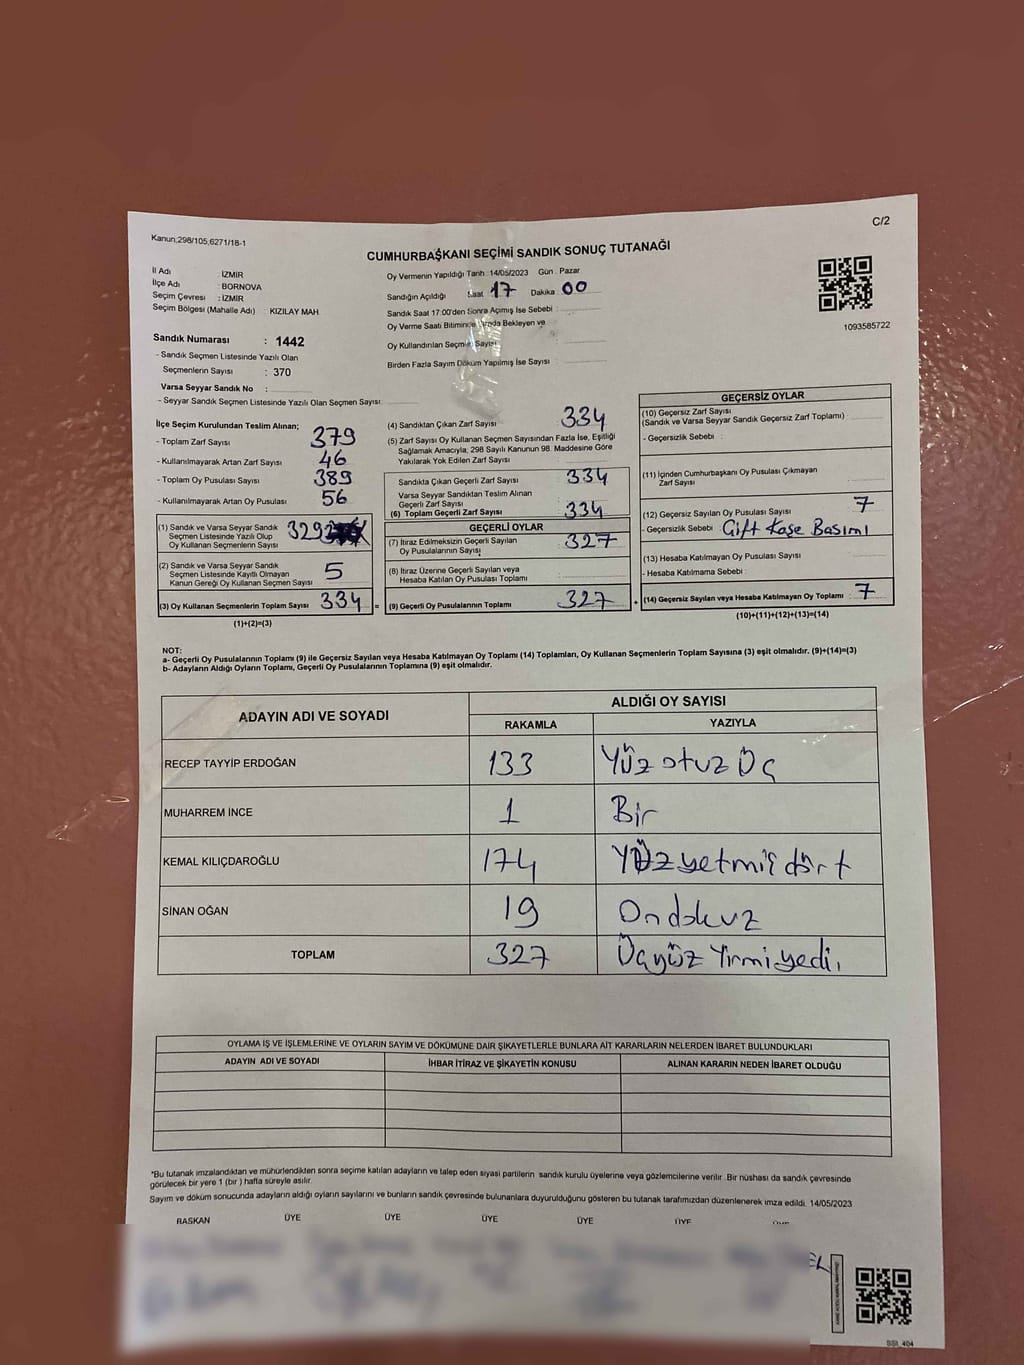 C/2
Kanun;298/105,6271/18-1
CUMHURBAŞKANI SEÇİMİ SANDIK SONUÇ TUTANAĞI
İl Adı : İZMİR
İlçe Adı : BORNOVA
Seçim Çevresi : İZMİR
Seçim Bölgesi (Mahalle Adı) KIZILAY MAH.
Oy Vermenin Yapıldığı Tarih :14/05/2023 Gün : Pazar
Sandığın Açıldığı Saat 17 Dakika 00
Sandık Saat 17:00'den Sonra Açılmış İse Sebebi :
Oy Verme Saati Bitiminde Bekleyen ve
Oy Kullandırılan Seçmen Sayısı
Birden Fazla Sayım Döküm Yapılmış İse Sayısı :
1093585722
Sandık Numarası : 1442
- Sandık Seçmen Listesinde Yazılı Olan
Seçmenlerin Sayısı : 370
Varsa Seyyar Sandık No :
- Seyyar Sandık Seçmen Listesinde Yazılı Olan Seçmen Sayısı:
İlçe Seçim Kurulundan Teslim Alınan;
- Toplam Zarf Sayısı 379
- Kullanılmayarak Artan Zarf Sayısı 46
- Toplam Oy Pusulası Sayısı 389
- Kullanılmayarak Artan Oy Pusulası 56
(1) Sandık ve Varsa Seyyar Sandık
Seçmen Listesinde Yazılı Olup
Oy Kullanan Seçmenlerin Sayısı 329
(2) Sandık ve Varsa Seyyar Sandık
Seçmen Listesinde Kayıtlı Olmayan
Kanun Gereği Oy Kullanan Seçmen Sayısı 5
(3) Oy Kullanan Seçmenlerin Toplam Sayısı 334 =
(1)+(2)=(3)
(4) Sandıktan Çıkan Zarf Sayısı : 334
(5) Zarf Sayısı Oy Kullanan Seçmen Sayısından Fazla İse, Eşitliği
Sağlamak Amacıyla, 298 Sayılı Kanunun 98. Maddesine Göre
Yakılarak Yok Edilen Zarf Sayısı :
Sandıkta Çıkan Geçerli Zarf Sayısı : 334
Varsa Seyyar Sandıktan Teslim Alınan
Geçerli Zarf Sayısı :
(6) Toplam Geçerli Zarf Sayısı : 334
GEÇERLİ OYLAR
(7) İtiraz Edilmeksizin Geçerli Sayılan
Oy Pusulalarının Sayısı : 327
(8) İtiraz Üzerine Geçerli Sayılan veya
Hesaba Katılan Oy Pusulası Toplamı :
(9) Geçerli Oy Pusulalarının Toplamı 327 +
GEÇERSİZ OYLAR
(10) Geçersiz Zarf Sayısı
(Sandık ve Varsa Seyyar Sandık Geçersiz Zarf Toplamı) :
- Geçersizlik Sebebi :
(11) İçinden Cumhurbaşkanı Oy Pusulası Çıkmayan
Zarf Sayısı :
(12) Geçersiz Sayılan Oy Pusulası Sayısı : 7
- Geçersizlik Sebebi : Çift Kaşe Basımı
(13) Hesaba Katılmayan Oy Pusulası Sayısı :
- Hesaba Katılmama Sebebi :
(14) Geçersiz Sayılan veya Hesaba Katılmayan Oy Toplamı : 7
(10)+(11)+(12)+(13)=(14)
NOT:
a- Geçerli Oy Pusulalarının Toplamı (9) ile Geçersiz Sayılan veya Hesaba Katılmayan Oy Toplamı (14) Toplamları, Oy Kullanan Seçmenlerin Toplam Sayısına (3) eşit olmalıdır. (9)+(14)=(3)
b- Adayların Aldığı Oyların Toplamı, Geçerli Oy Pusulalarının Toplamına (9) eşit olmalıdır.
ADAYIN ADI VE SOYADI
ALDIĞI OY SAYISI
RAKAMLA YAZIYLA
RECEP TAYYİP ERDOĞAN 133 Yüz otuz Üç
MUHARREM İNCE 1 Bir
KEMAL KILIÇDAROĞLU 174 Yüzyetmiş dört
SİNAN OĞAN 19 Ondokuz
TOPLAM 327 Üçyüz Yirmiyedi.
OYLAMA İŞ VE İŞLEMLERİNE VE OYLARIN SAYIM VE DÖKÜMÜNE DAİR ŞİKAYETLERLE BUNLARA AİT KARARLARIN NELERDEN İBARET BULUNDUKLARI
ADAYIN ADI VE SOYADI İHBAR İTİRAZ VE ŞİKAYETİN KONUSU ALINAN KARARIN NEDEN İBARET OLDUĞU
*Bu tutanak imzalandıktan ve mühürlendikten sonra seçime katılan adayların ve talep eden siyasi partilerin sandık kurulu üyelerine veya gözlemcilerine verilir. Bir nüshası da sandık çevresinde
görülecek bir yere 1 (bir) hafta süreyle asılır.
Sayım ve döküm sonucunda adayların aldığı oyların sayılarını ve bunların sandık çevresinde bulunanlara duyurulduğunu gösteren bu tutanak tarafımızdan düzenlenerek imza edildi. 14/05/2023
BAŞKAN ÜYE ÜYE ÜYE ÜYE ÜYE ÜYE